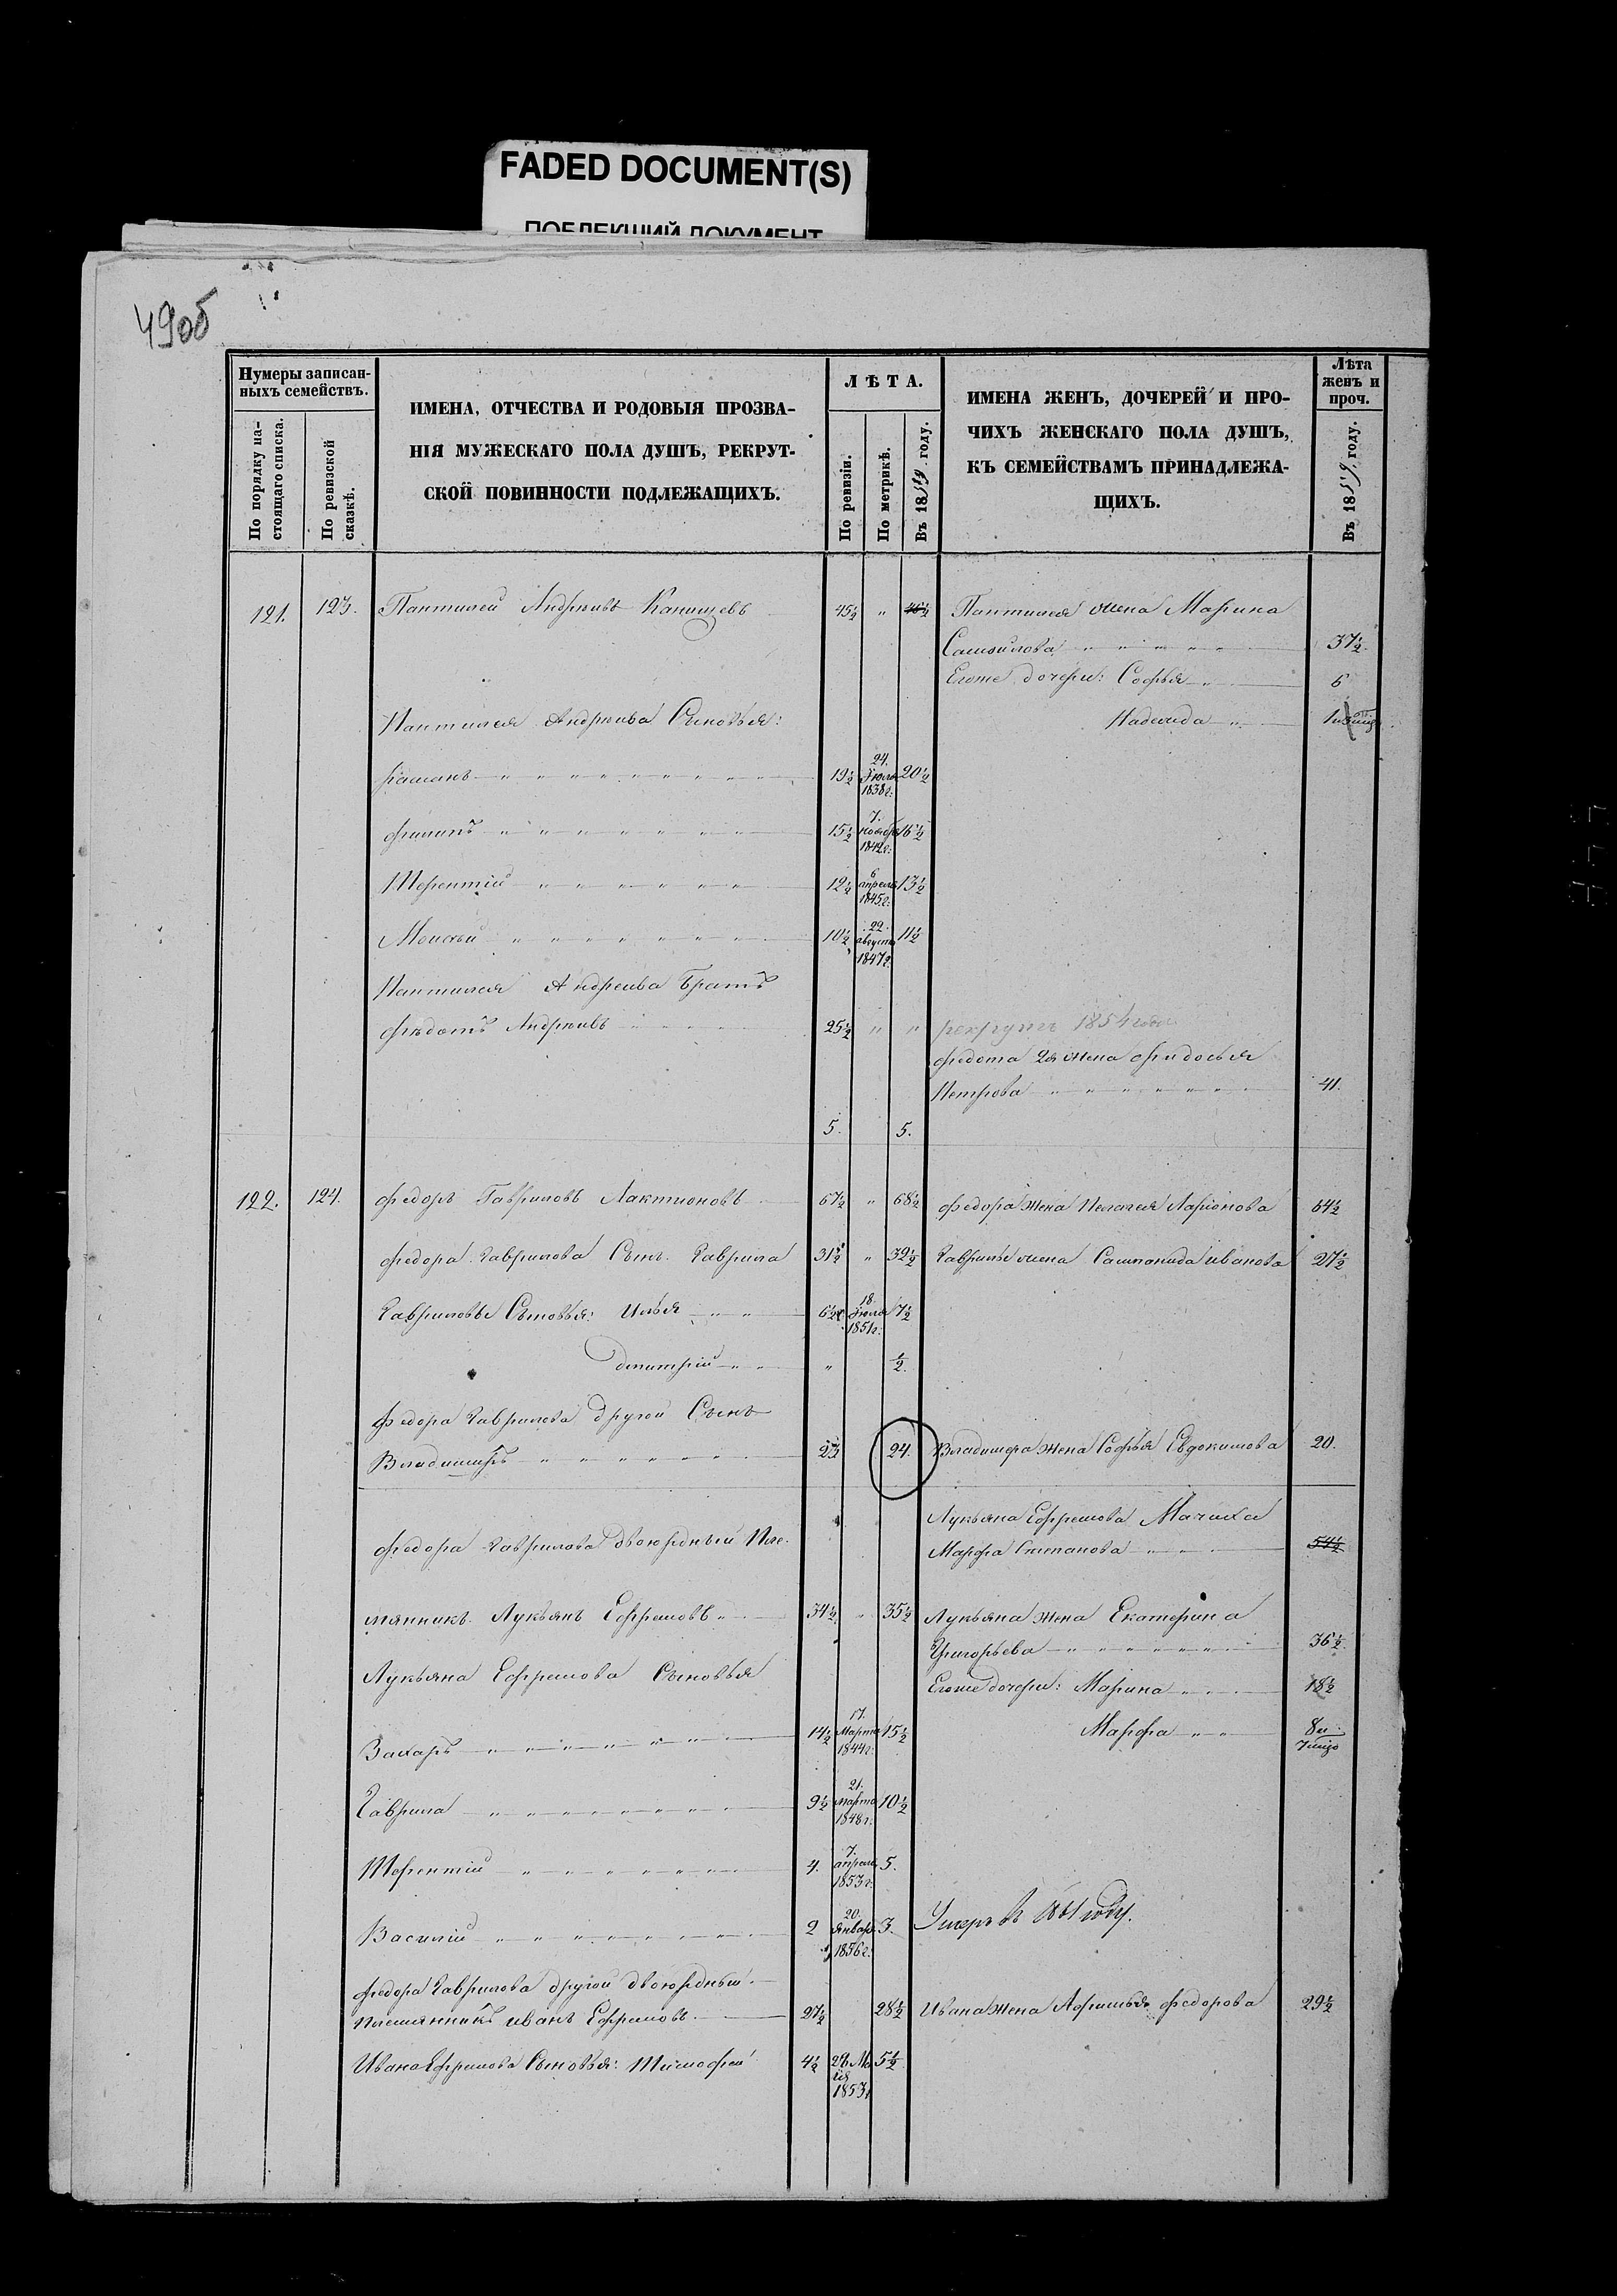 FADED DOCUMENT(S)
ПОБЛЕКШИЙ ДОКУМЕНТ
49об
Нумеры записан-
ныхъ семействъ.
По порядку на-
стоящаго списка.
По ревизской
сказкѣ.
ИМЕНА, ОТЧЕСТВА И РОДОВЫЯ ПРОЗВА-
НІЯ МУЖЕСКАГО ПОЛА ДУШЪ, РЕКРУТ-
СКОЙ ПОВИННОСТИ ПОДЛЕЖАЩИХЪ.
ЛѢТА.
По ревизіи.
По метрикѣ.
Въ 1859 году.
ИМЕНА ЖЕНЪ, ДОЧЕРЕЙ И ПРО-
ЧИХЪ ЖЕНСКАГО ПОЛА ДУШЪ,
КЪ СЕМЕЙСТВАМЪ ПРИНАДЛЕЖА-
ЩИХЪ.
Лѣта
женъ и
проч.
Въ 1859 году.
121. 123. Пантилей Андреивъ Канищевъ 45½ " 46½ Пантилея жена Марина
Самойлова 37½
Егоже дочери: Софья 6
Пантилея Андреива Сыновья: Надежда
Раманъ 19½ 24. Июля 1838г: 20½
Филипъ 15½ 7. Ноября 1842г: 16½
Терентій 12½ 6 апреля 1845г: 13½
Моисей 10½ 22. августа 1847г. 11½
Пантилея Андреива Братъ
Федотъ Андреивъ 25½ " " рекрутъ 1854 года
Федота 2я жена Фидосья
Петрова 41.
5. 5.
122. 124. Федоръ Гавриловъ Лактионовъ 67½ " 68½ Федора жена Пелагея Ларіонова 64½
Федора Гаврилова Сынъ Гаврила 31½ " 32½ Гаврилы жена Сашпанида иванова 27½
Гавриловы Сыновья: Илья 6½ 18. Июля 1851г: 7½
дмитрій " ½.
Федора Гаврилова другой Сынъ
Владимиръ 23 24. Владимера жена Софья Евдокимова 20.
Лукьяна Ефремова Мачиха
Федора Гаврилова двоюрдный Пле- Марфа Степанова 54½
мянникъ Лукьянъ Ефремовъ 34½ " 35½ Лукьяна жена Екатерина
Григорьева 36½
Лукьяна Ефремова Сыновья Егоже дочери: Марина 18½
Захаръ 14½ 17. Марта 1844г: 15½ Марфа 8 и 7 миցо
Гаврила 9½ 21. марта 1848г: 10½
Терентій 4. 7. апреля 1853г: 5.
Василій 2 20. Января 1856г: 3. Умеръ въ 1861 году.
Федора Гаврилова другой двоюрдный
племянникъ иванъ Ефремовъ 27½ 28½ Ивана жена Афимья Федорова 29½
Ивана Ефремова Сыновья: Тимофей 4½ 1853г 5½